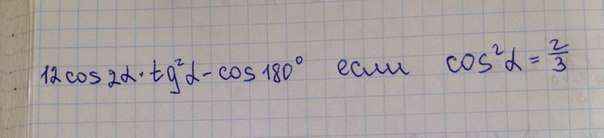 12cos2α·tg²α-cos180° если cos²α=2/3